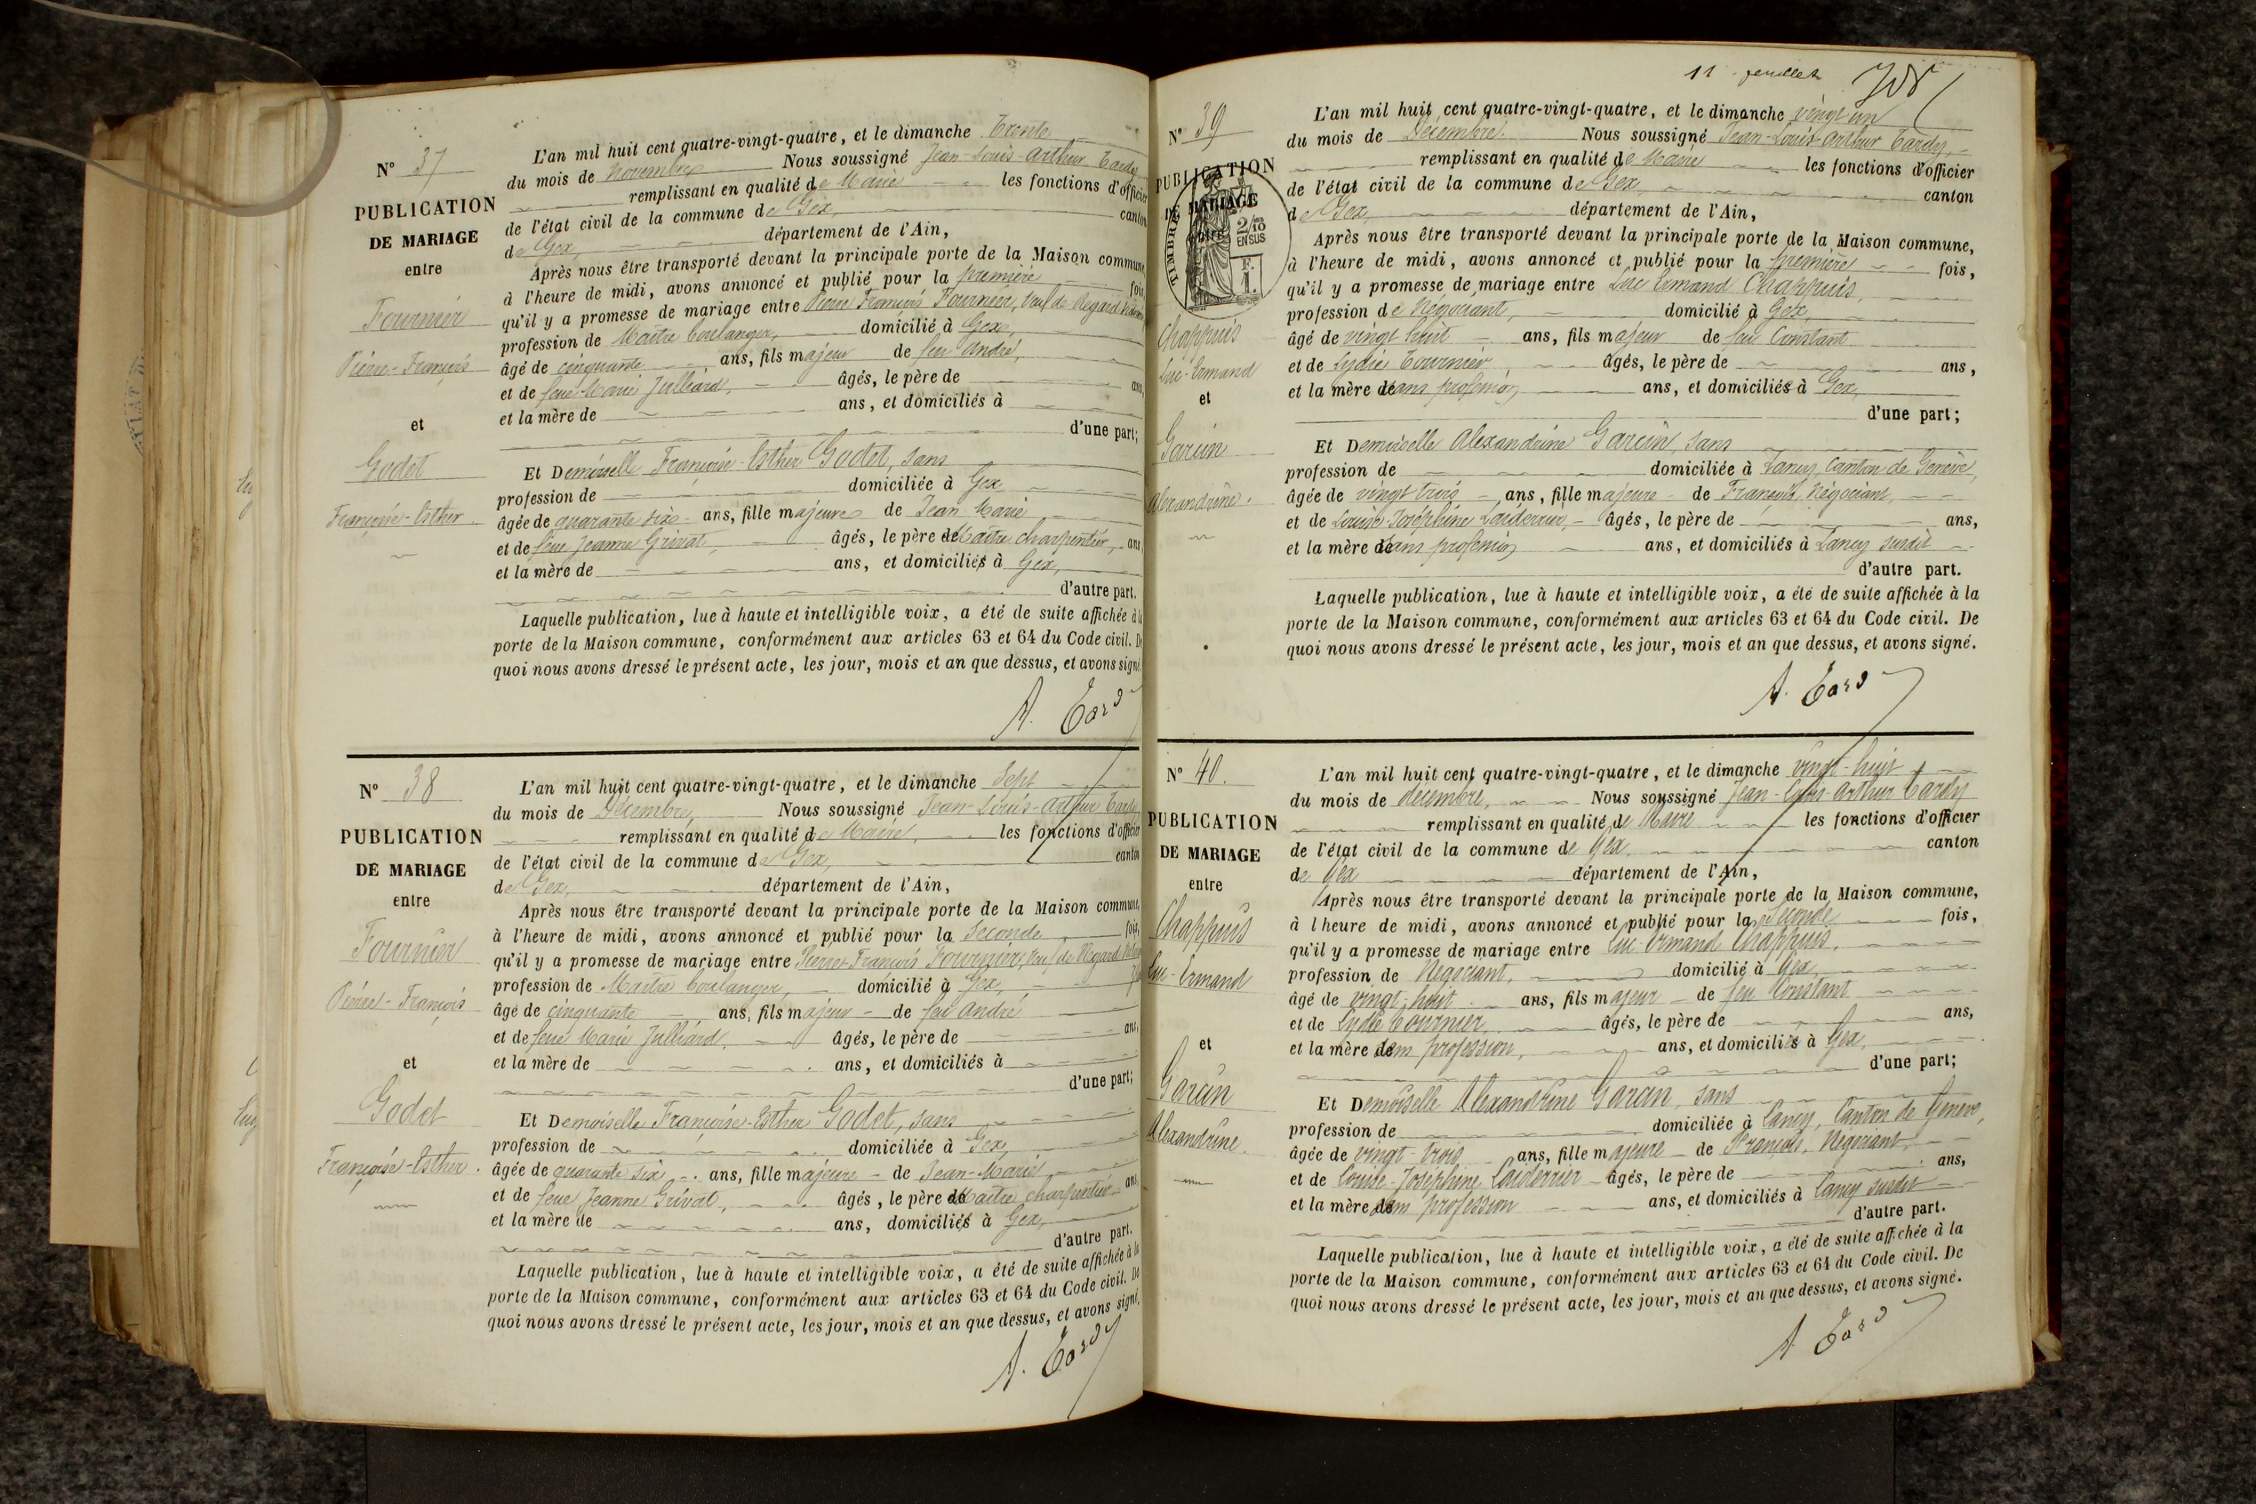 N° 37
PUBLICATION
DE MARIAGE
entre
Fournier
Pierre-François
et
Godet
Françoise-Esther
L'an mil huit cent quatre-vingt-quatre, et le dimanche trente
du mois de Novembre Nous soussigné Jean-Louis-Arthur Tardy
remplissant en qualité de Maire les fonctions d'officier
de l'état civil de la commune de Gex, canton
de Gex, département de l'Ain,
Après nous être transporté devant la principale porte de la Maison commune,
à l'heure de midi, avons annoncé et publié pour la première fois,
qu'il y a promesse de mariage entre Pierre François Fournier, veuf de Regard
profession de Maître boulanger, domicilié à Gex,
âgé de cinquante ans, fils majeur de feu André,
et de feue Marie Julliard, âgés, le père de ans,
et la mère de ans, et domiciliés à
d'une part;
Et Demoiselle Françoise-Esther Godet, sans
profession de domiciliée à Gex
âgée de quarante six ans, fille majeure de Jean Marie
et de feue Jeanne Grivat, âgés, le père de Maître charpentier, ans,
et la mère de ans, et domiciliés à Gex,
d'autre part.
Laquelle publication, lue à haute et intelligible voix, a été de suite affichée à la
porte de la Maison commune, conformément aux articles 63 et 64 du Code civil. De
quoi nous avons dressé le présent acte, les jour, mois et an que dessus, et avons signé.
A. Tardy
N° 38
PUBLICATION
DE MARIAGE
entre
Fournier
Pierre-François
et
Godet
Françoise-Esther
L'an mil huit cent quatre-vingt-quatre, et le dimanche Sept
du mois de Décembre, Nous soussigné Jean-Louis-Arthur Tardy
remplissant en qualité de Maire, les fonctions d'officier
de l'état civil de la commune de Gex, canton
de Gex, département de l'Ain,
Après nous être transporté devant la principale porte de la Maison commune,
à l'heure de midi, avons annoncé et publié pour la Seconde fois,
qu'il y a promesse de mariage entre Pierre-François Fournier, veuf de Regard
profession de Maître boulanger, domicilié à Gex,
âgé de cinquante ans, fils majeur de feu André
et de feue Marie Julliard, âgés, le père de ans,
et la mère de ans, et domiciliés à
d'une part;
Et Demoiselle Françoise-Esther Godet, sans
profession de domiciliée à Gex,
âgée de quarante six ans, fille majeure de Jean-Marie
et de feue Jeanne Grivat, âgés, le père de Maître charpentier ans,
et la mère de ans, domiciliés à Gex,
d'autre part.
Laquelle publication, lue à haute et intelligible voix, a été de suite affichée à la
porte de la Maison commune, conformément aux articles 63 et 64 du Code civil. De
quoi nous avons dressé le présent acte, les jour, mois et an que dessus, et avons signé.
A. Tardy
11e feuillet
N° 39
PUBLICATION
DE MARIAGE
entre
TIMBRE
2/10
EN SUS
F.
1.
Chappuis
Luc-Ermand
et
Garcin
Alexandrine.
L'an mil huit cent quatre-vingt-quatre, et le dimanche vingt un
du mois de Décembre. Nous soussigné Jean-Louis-Arthur Tardy,
remplissant en qualité de Maire les fonctions d'officier
de l'état civil de la commune de Gex, canton
de Gex, département de l'Ain,
Après nous être transporté devant la principale porte de la Maison commune,
à l'heure de midi, avons annoncé et publié pour la première fois,
qu'il y a promesse de mariage entre Luc Ermand Chappuis,
profession de Négociant, domicilié à Gex,
âgé de vingt huit ans, fils majeur de feu Constant
et de Lydie Tournier, âgés, le père de ans,
et la mère de sans profession, ans, et domiciliés à Gex,
d'une part;
Et Demoiselle Alexandrine Garcin, sans
profession de domiciliée à Lancy, canton de Genève,
âgée de vingt trois ans, fille majeure de François, Négociant,
et de Louise-Joséphine Laiderrier, âgés, le père de ans,
et la mère de sans profession, ans, et domiciliés à Lancy susdit
d'autre part.
Laquelle publication, lue à haute et intelligible voix, a été de suite affichée à la
porte de la Maison commune, conformément aux articles 63 et 64 du Code civil. De
quoi nous avons dressé le présent acte, les jour, mois et an que dessus, et avons signé.
A. Tardy
N° 40.
PUBLICATION
DE MARIAGE
entre
Chappuis
Luc-Ermand
et
Garcin
Alexandrine.
L'an mil huit cent quatre-vingt-quatre, et le dimanche vingt-huit
du mois de décembre, Nous soussigné Jean-Louis-Arthur Tardy
remplissant en qualité de Maire les fonctions d'officier
de l'état civil de la commune de Gex. canton
de Gex département de l'Ain,
Après nous être transporté devant la principale porte de la Maison commune,
à l'heure de midi, avons annoncé et publié pour la Seconde fois,
qu'il y a promesse de mariage entre Luc-Ermand Chappuis.
profession de Négociant, domicilié à Gex,
âgé de vingt-huit ans, fils majeur de feu Constant
et de Lydie Tournier, âgés, le père de ans,
et la mère de sans profession, ans, et domiciliés à Gex,
d'une part;
Et Demoiselle Alexandrine Garcin, sans
profession de domiciliée à Lancy, Canton de Genève,
âgée de vingt-trois ans, fille majeure de François, Négociant,
et de Louise-Joséphine Laiderrier âgés, le père de ans,
et la mère de sans profession ans, et domiciliés à Lancy susdit
d'autre part.
Laquelle publication, lue à haute et intelligible voix, a été de suite affichée à la
porte de la Maison commune, conformément aux articles 63 et 64 du Code civil. De
quoi nous avons dressé le présent acte, les jour, mois et an que dessus, et avons signé.
A. Tardy